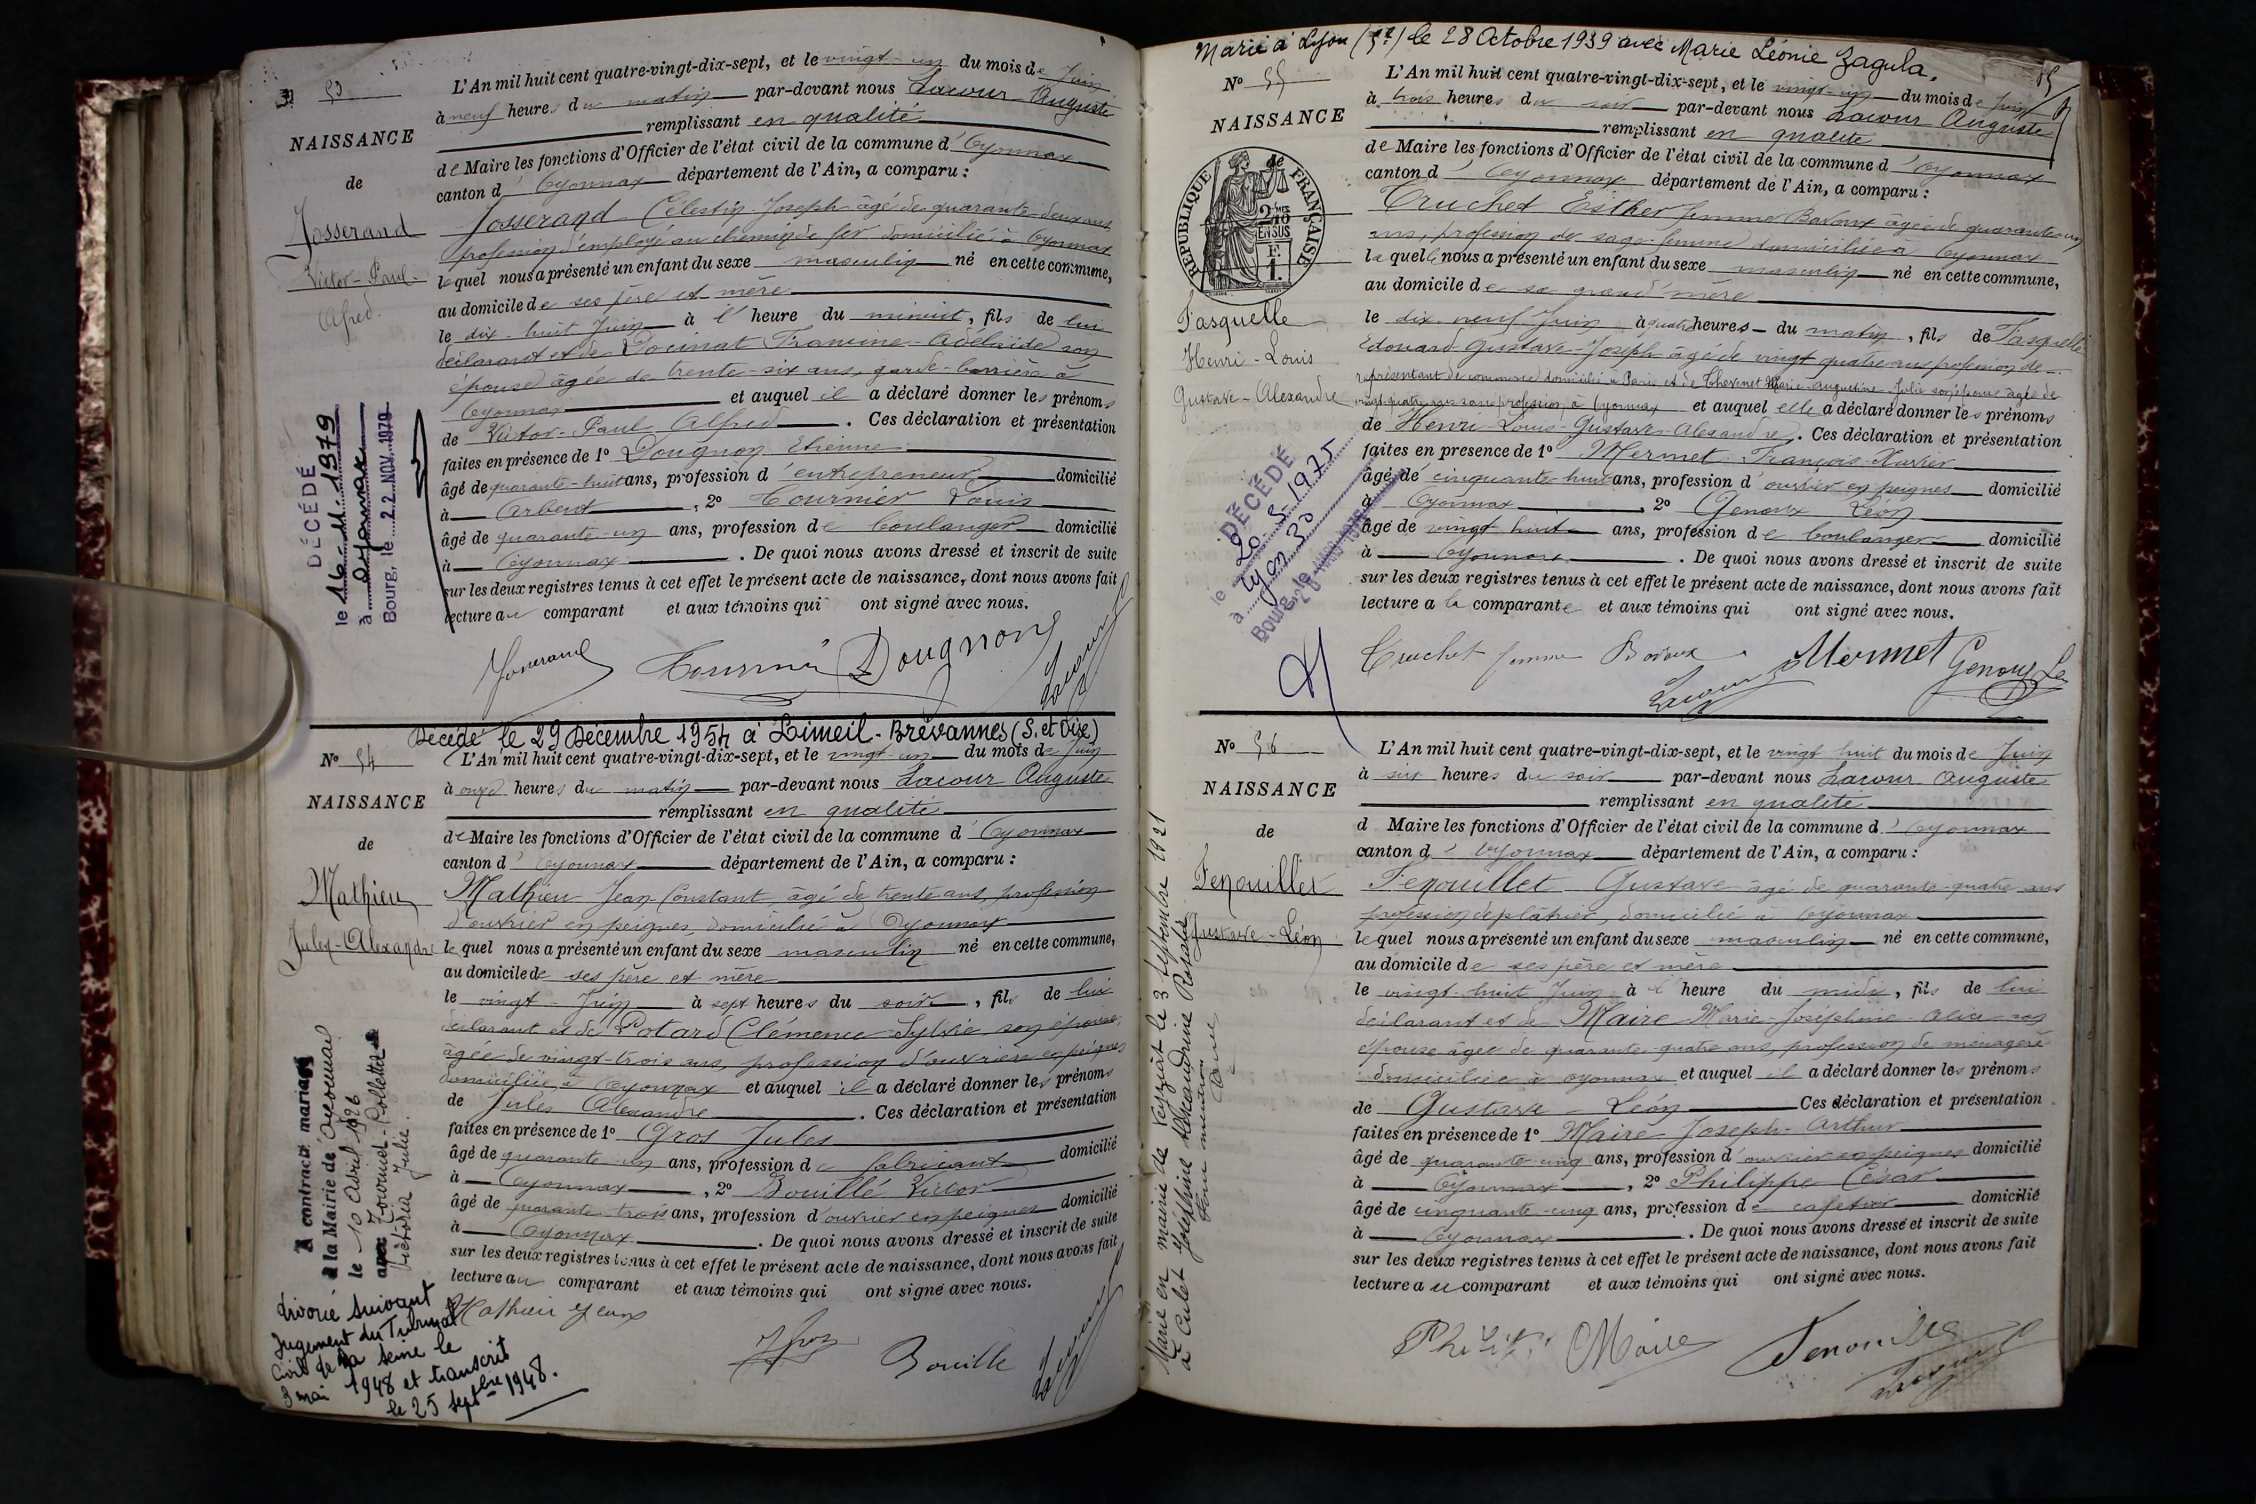 N° 53
NAISSANCE
de
Josserand
Victor-Paul-
Alfred.
L'An mil huit cent quatre-vingt-dix-sept, et le vingt-un du mois de Juin
à neuf heures du matin par-devant nous Lacour Auguste
remplissant en qualité
de Maire les fonctions d'Officier de l'état civil de la commune d'Oyonnax
canton d'Oyonnax département de l'Ain, a comparu :
Josserand Célestin Joseph âgé de quarante-deux ans
profession d'employé au chemin de fer domicilié à Oyonnax
lequel nous a présenté un enfant du sexe masculin né en cette commune,
au domicile de ses père et mère
le dix-huit Juin à l'heure du minuit, fils de lui
déclarant et de Francine-Adélaïde son
épouse âgée de trente-six ans, garde-barrière à
Oyonnax et auquel il a déclaré donner les prénoms
de Victor-Paul Alfred. Ces déclaration et présentation
faites en présence de 1° Dougnon Etienne
âgé de quarante-huit ans, profession d'entrepreneur domicilié
à Arbent, 2° Tournier Louis
âgé de quarante-un ans, profession de boulanger domicilié
à Oyonnax. De quoi nous avons dressé et inscrit de suite
sur les deux registres tenus à cet effet le présent acte de naissance, dont nous avons fait
lecture au comparant et aux témoins qui ont signé avec nous.
Josserand Tournier Dougnon Lacour
DÉCÉDÉ
le 16-11-1979
à Oyonnax
Bourg, le 22 NOV. 1979
Décédé le 29 Décembre 1954 à Limeil-Brévannes (S. et Oise)
N° 54
NAISSANCE
de
Mathieu
Jules-Alexandre
L'An mil huit cent quatre-vingt-dix-sept, et le vingt-un du mois de Juin
à onze heures du matin par-devant nous Lacour Auguste
remplissant en qualité
de Maire les fonctions d'Officier de l'état civil de la commune d'Oyonnax
canton d'Oyonnax département de l'Ain, a comparu :
Mathieu Jean Constant, âgé de trente ans, profession
d'ouvrier en peignes, domicilié à Oyonnax
lequel nous a présenté un enfant du sexe masculin né en cette commune,
au domicile de ses père et mère
le vingt Juin à sept heures du soir, fils de lui
déclarant et de Potard Clémence Sylvie son épouse,
âgée de vingt-trois ans, profession d'ouvrière en peignes
domiciliée à Oyonnax et auquel il a déclaré donner les prénoms
de Jules Alexandre. Ces déclaration et présentation
faites en présence de 1° Gros Jules
âgé de quarante-un ans, profession de fabricant domicilié
à Oyonnax, 2° Bouillé Victor
âgé de quarante-trois ans, profession d'ouvrier en peignes domicilié
à Oyonnax. De quoi nous avons dressé et inscrit de suite
sur les deux registres tenus à cet effet le présent acte de naissance, dont nous avons fait
lecture au comparant et aux témoins qui ont signé avec nous.
Mathieu Jean
Bouillé Lacour
A contracté mariage
à la Mairie de Oyonnax
le 10 avril 1926
avec
Victoria Julie.
divorcé suivant
Jugement du Tribunal
Civil de la Seine le
3 mai 1948 et transcrit
le 25 septbre 1948.
Marié à Lyon (3e) le 28 Octobre 1939 avec Marie Léonie Zagula.
N° 55
NAISSANCE
de
RÉPUBLIQUE FRANÇAISE
2/10 EN SUS
F. 1.
Fasquelle
Henri-Louis
Gustave-Alexandre
L'An mil huit cent quatre-vingt-dix-sept, et le vingt-un du mois de Juin
à trois heures du soir par-devant nous Lacour Auguste
remplissant en qualité
de Maire les fonctions d'Officier de l'état civil de la commune d'Oyonnax
canton d'Oyonnax département de l'Ain, a comparu :
Truchet Esther femme Bavoux âgée de quarante-un
ans, profession de sage-femme domiciliée à Oyonnax
laquelle nous a présenté un enfant du sexe masculin né en cette commune,
au domicile de sa grand'mère
le dix-neuf Juin à quatre heures du matin, fils de Fasquelle
Edouard Gustave-Joseph âgé de vingt quatre ans profession de
représentant de commerce domicilié à Paris et de Thevenet Marie-Augustine-Julie son épouse âgée de
vingt-quatre ans sans profession, à Oyonnax et auquel elle a déclaré donner les prénoms
de Henri-Louis-Gustave-Alexandre. Ces déclaration et présentation
faites en présence de 1° Mermet François-Xavier
âgé de cinquante-huit ans, profession d'ouvrier en peignes domicilié
à Oyonnax, 2° Genoux Léon
âgé de vingt-huit ans, profession de boulanger domicilié
à Oyonnax. De quoi nous avons dressé et inscrit de suite
sur les deux registres tenus à cet effet le présent acte de naissance, dont nous avons fait
lecture à la comparante et aux témoins qui ont signé avec nous.
Truchet femme Bavoux Mermet Genoux Lé
Lacour
DÉCÉDÉ
le 20.3.1975
à Lyon 3e
Bourg, le
N° 56
NAISSANCE
de
Fenouillet
Gustave-Léon
L'An mil huit cent quatre-vingt-dix-sept, et le vingt huit du mois de Juin
à six heures du soir par-devant nous Lacour Auguste
remplissant en qualité
d Maire les fonctions d'Officier de l'état civil de la commune d'Oyonnax
canton d'Oyonnax département de l'Ain, a comparu :
Fenouillet Gustave âgé de quarante-quatre ans
profession de plâtrier, domicilié à Oyonnax
lequel nous a présenté un enfant du sexe masculin né en cette commune,
au domicile de ses père et mère
le vingt-huit Juin à l'heure du midi, fils de lui
déclarant et de Maire Marie-Joséphine-Alice son
épouse âgée de quarante-quatre ans, profession de ménagère
domiciliée à Oyonnax et auquel il a déclaré donner les prénoms
de Gustave-Léon Ces déclaration et présentation
faites en présence de 1° Maire Joseph-Arthur
âgé de quarante-cinq ans, profession d'ouvrier en peignes domicilié
à Oyonnax, 2° Philippe César
âgé de cinquante-cinq ans, profession de cafetier domicilié
à Oyonnax. De quoi nous avons dressé et inscrit de suite
sur les deux registres tenus à cet effet le présent acte de naissance, dont nous avons fait
lecture au comparant et aux témoins qui ont signé avec nous.
Philippe Maire Fenouillet
Lacour
Marié en mairie de Veyziat le 3 septembre 1921
à Culet Joséphine Alexandrine Rosalie
Pour mention